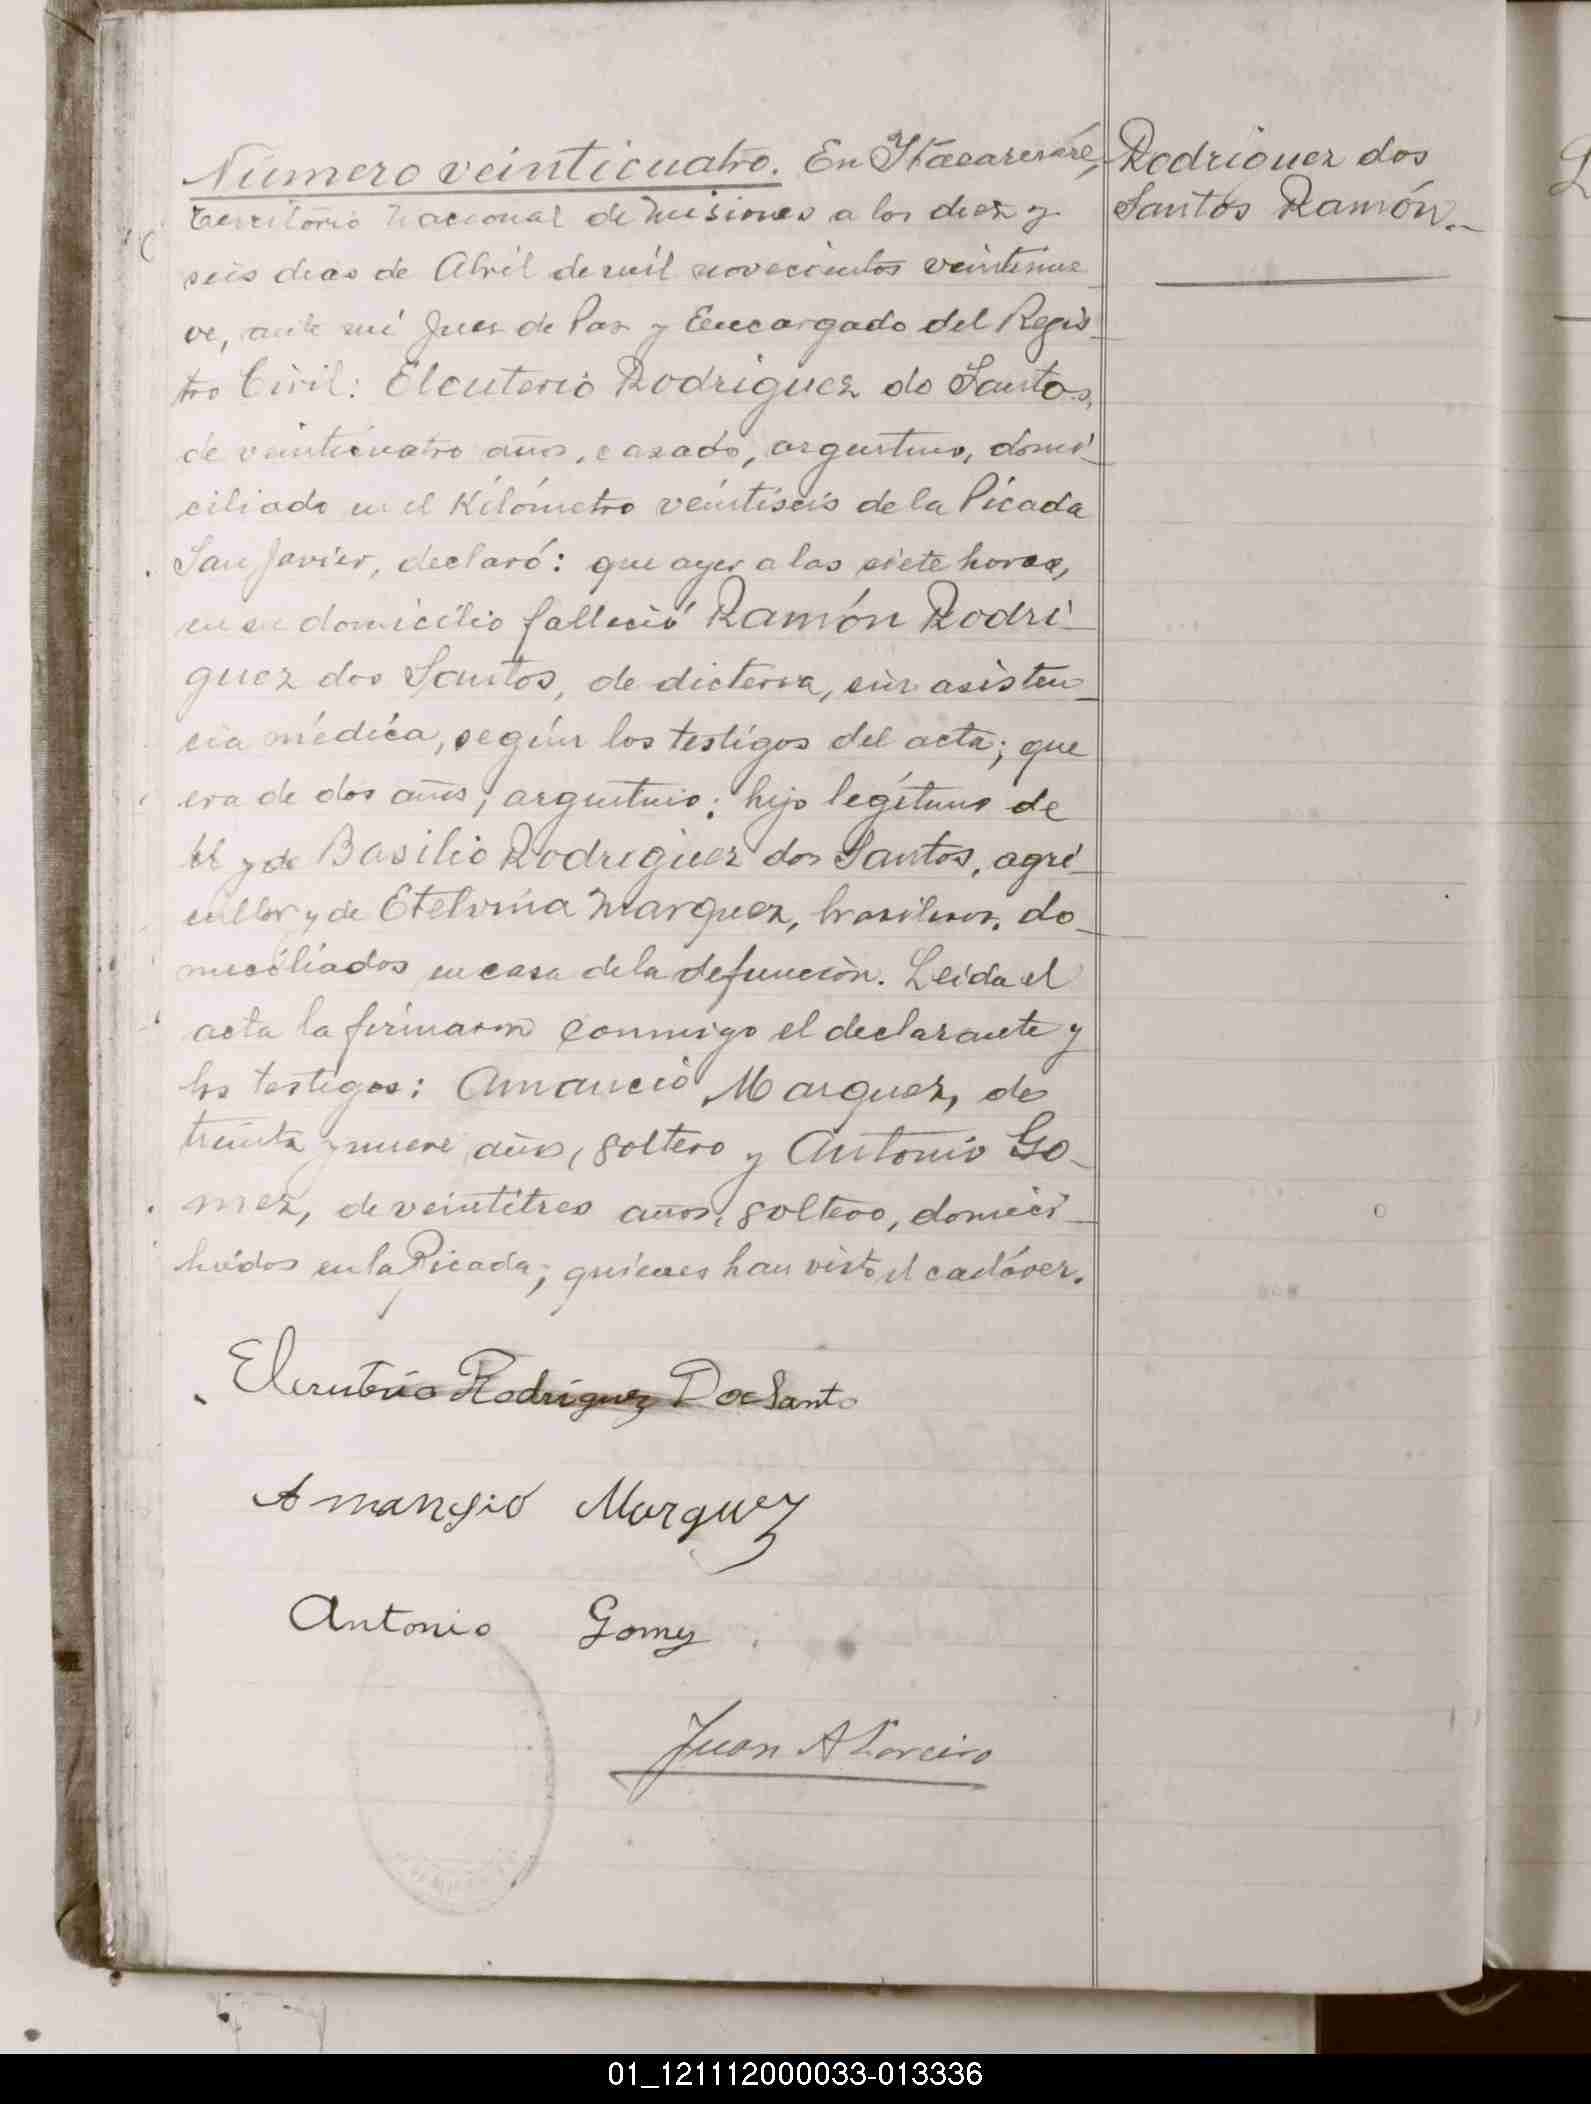 Número veinticuatro. En Itacaruaré,
territorio nacional de Misiones a los diez y
seis dias de Abril de mil novecientos veintinue
ve, ante mi Juez de Paz y Encargado del Regis
tro Civil: Eleuterio Rodriguez do Santos,
de veinticuatro años, casado, argentino, domi
ciliado en el Kilómetro veintiseis de la Picada
San Javier, declaró: que ayer a las siete horas,
en su domicilio falleció Ramón Rodri
guez dos Santos, de dicteria, sin asisten
cia médica, según los testigos del acta; que
era de dos años, argentino; hijo legítimo de
y de Basilio Rodriguez dos Santos, agri
cultor y de Etelvina Marquez, brasileros, do
miciliados en casa de la defunción. Leida el
acta la firmaron conmigo el declarante y
los testigos: Amancio Marquez, de
treinta y nueve años, soltero y Antonio Go
mez, de veintitres años, soltero, domici
liados en la Picada; quienes han visto el cadáver.
Rodriguez dos
Santos Ramón.
Eleuterio Rodriguez Dos Santo
Amansio Marquez
Antonio Gomez
Juan A Loreiro
01_121112000033-013336